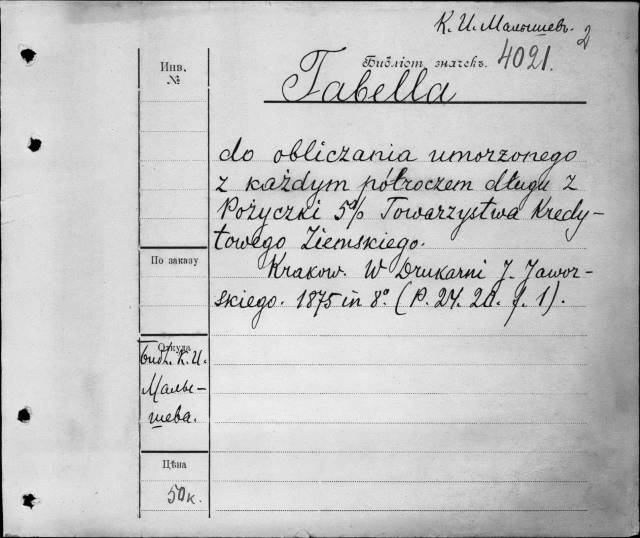 К. И. Малышевъ. 2
Библіот. значекъ. 4021.
Инв.
№
Tabella
do obliczania umorzonego
z każdym półroczem długu z
Pożyczki 5% Towarzystwa Kredy-
towego Ziemskiego.
По заказу
Krakow. W Drukarni J. Jawor-
skiego. 1875 in 8°.
Откуда
Библ. К. И.
Малы-
шева.
Цѣна
50 к.